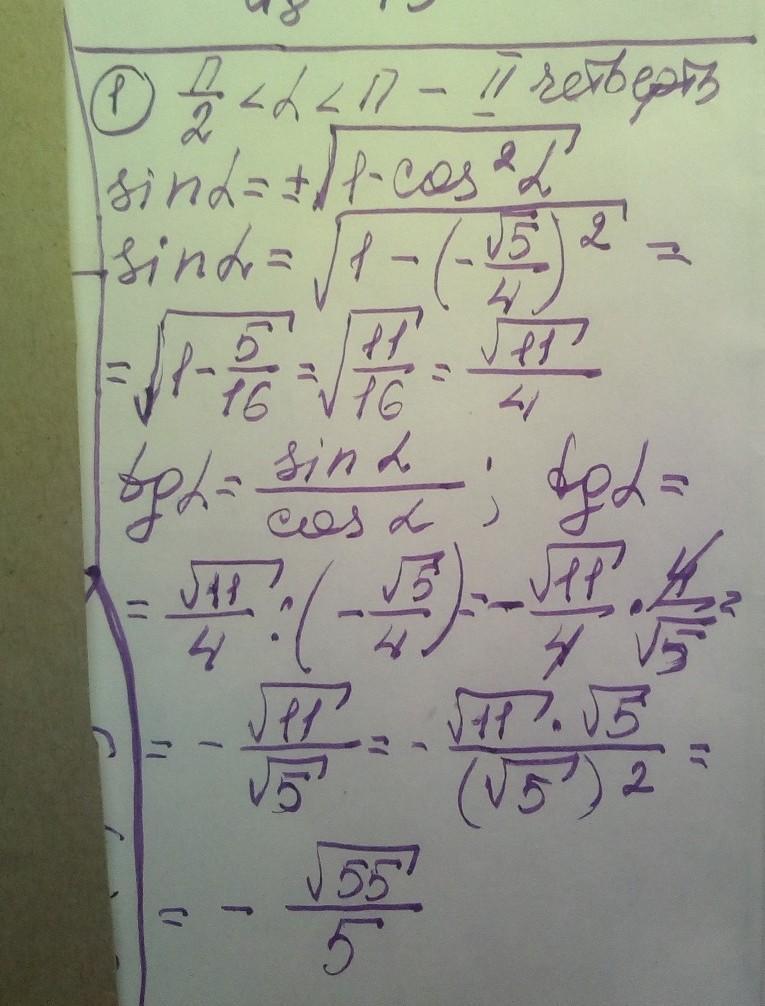 ① π/2 < α < π - II четверть
sin α = ±√(1 - cos² α)
sin α = √(1 - (-√5/4)²) =
= √(1 - 5/16) = √(11/16) = √11/4
tg α = sin α/cos α ; tg α =
= √11/4 : (-√5/4) = - √11/4 · 4/√5 =
= - √11/√5 = - √11 · √5/(√5)² =
= - √55/5